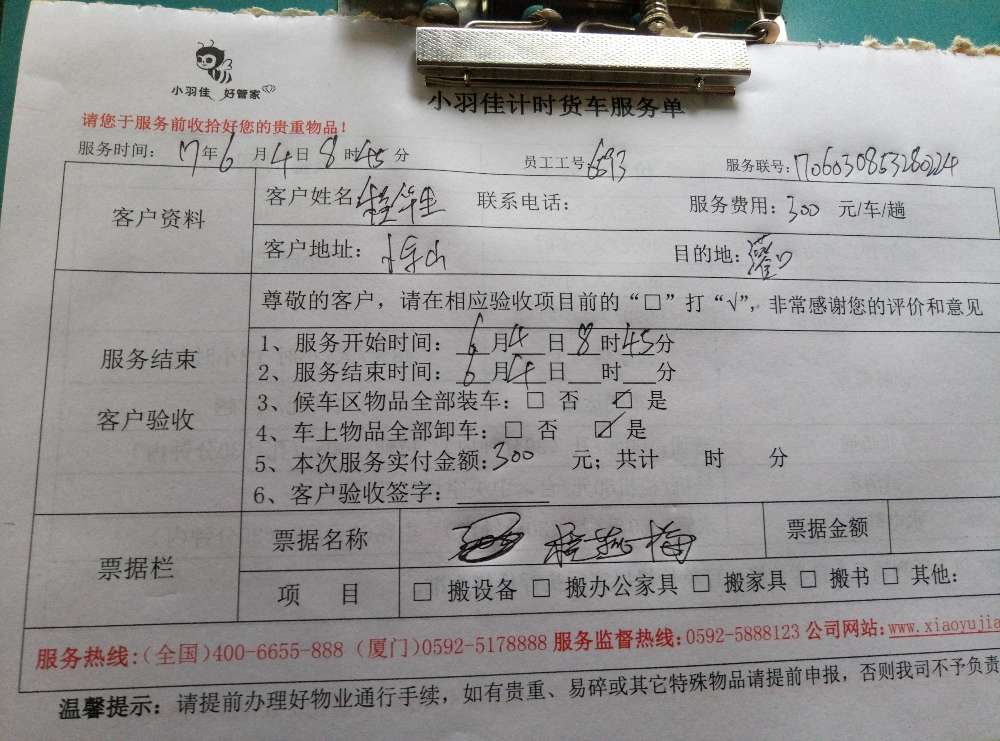 小羽佳 好管家
小羽佳计时货车服务单
请您于服务前收拾好您的贵重物品！
服务时间： 17年6月4日8时45分 员工工号：6593 服务联号：1706030853280224
客户资料
客户姓名 联系电话： 服务费用：300 元/车/趟
客户地址： 目的地：
尊敬的客户，请在相应验收项目前的“□”打“√”，非常感谢您的评价和意见
服务结束
客户验收
1、服务开始时间：6月4日8时45分
2、服务结束时间：6月4日 时 分
3、候车区物品全部装车：□ 否 ☑ 是
4、车上物品全部卸车：□ 否 ☑ 是
5、本次服务实付金额：300 元；共计 时 分
6、客户验收签字：
票据栏
票据名称 票据金额
项 目 □ 搬设备 □ 搬办公家具 □ 搬家具 □ 搬书 □ 其他：
服务热线:(全国)400-6655-888 (厦门)0592-5178888 服务监督热线:0592-5888123 公司网站:www.xiaoyujia
温馨提示：请提前办理好物业通行手续，如有贵重、易碎或其它特殊物品请提前申报，否则我司不予负责